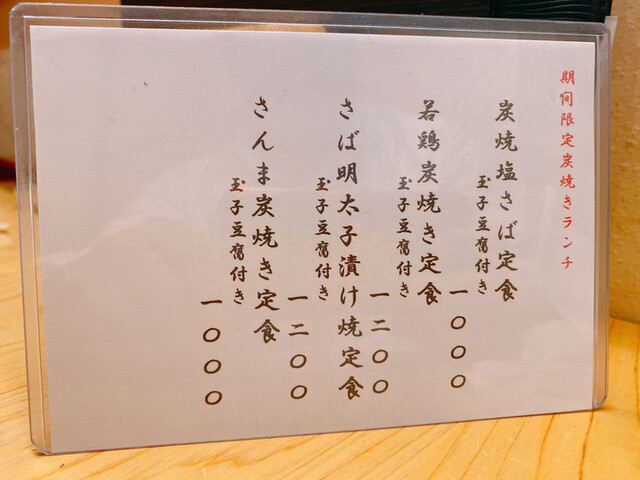 期間限定炭焼きランチ
炭焼塩さば定食
玉子豆腐付き
一〇〇〇
若鶏炭焼き定食
玉子豆腐付き
一二〇〇
さば明太子漬け焼定食
玉子豆腐付き
一二〇〇
さんま炭焼き定食
玉子豆腐付き
一〇〇〇